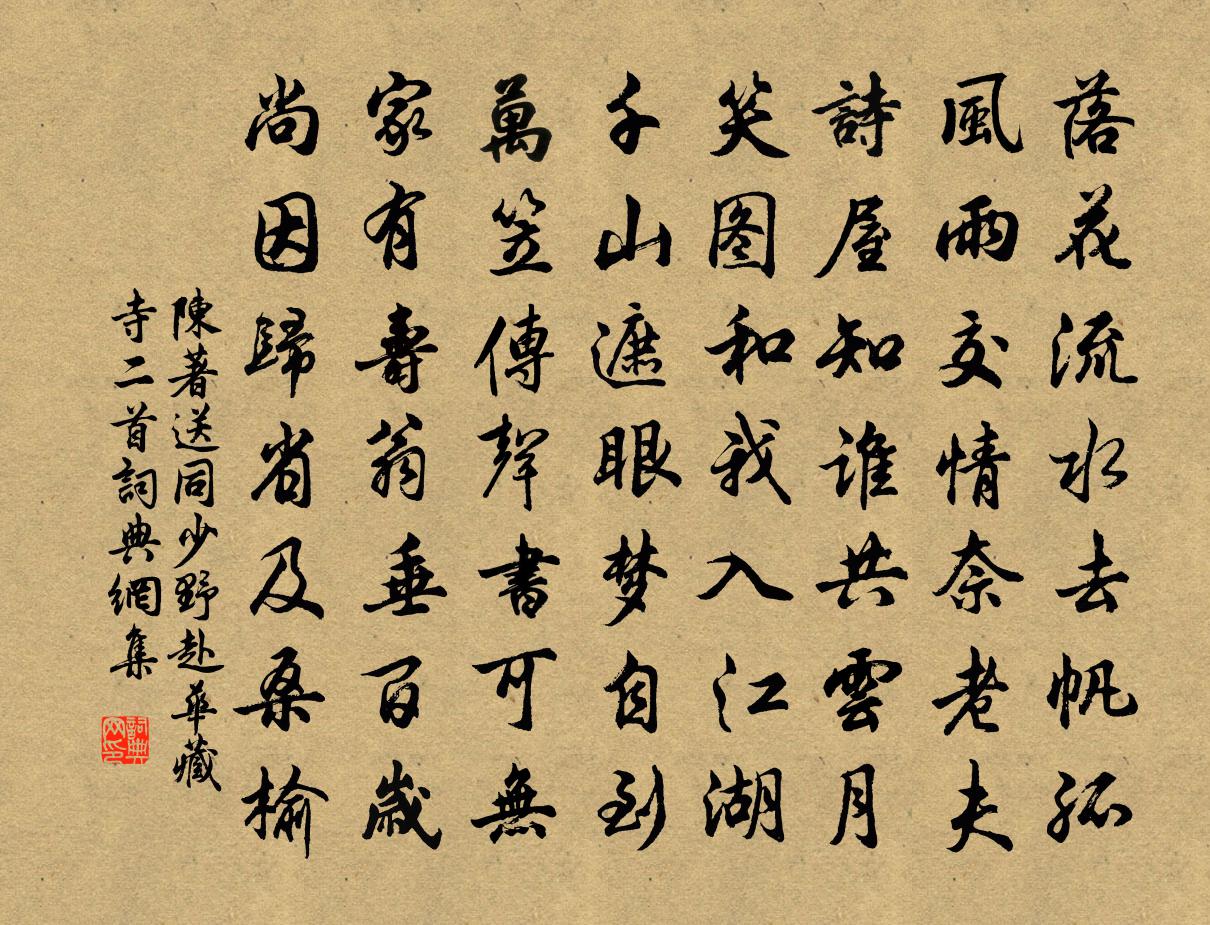 落花流水去帆孤
風雨交情奈老夫
詩屋知誰共雲月
笑图和我入江湖
千山遮眼梦自到
萬笠傳聲書可無
家有壽翁垂百歲
尚因歸省及桑榆
陳著送同少野赴華藏
寺二首詞典網集
詞典网印